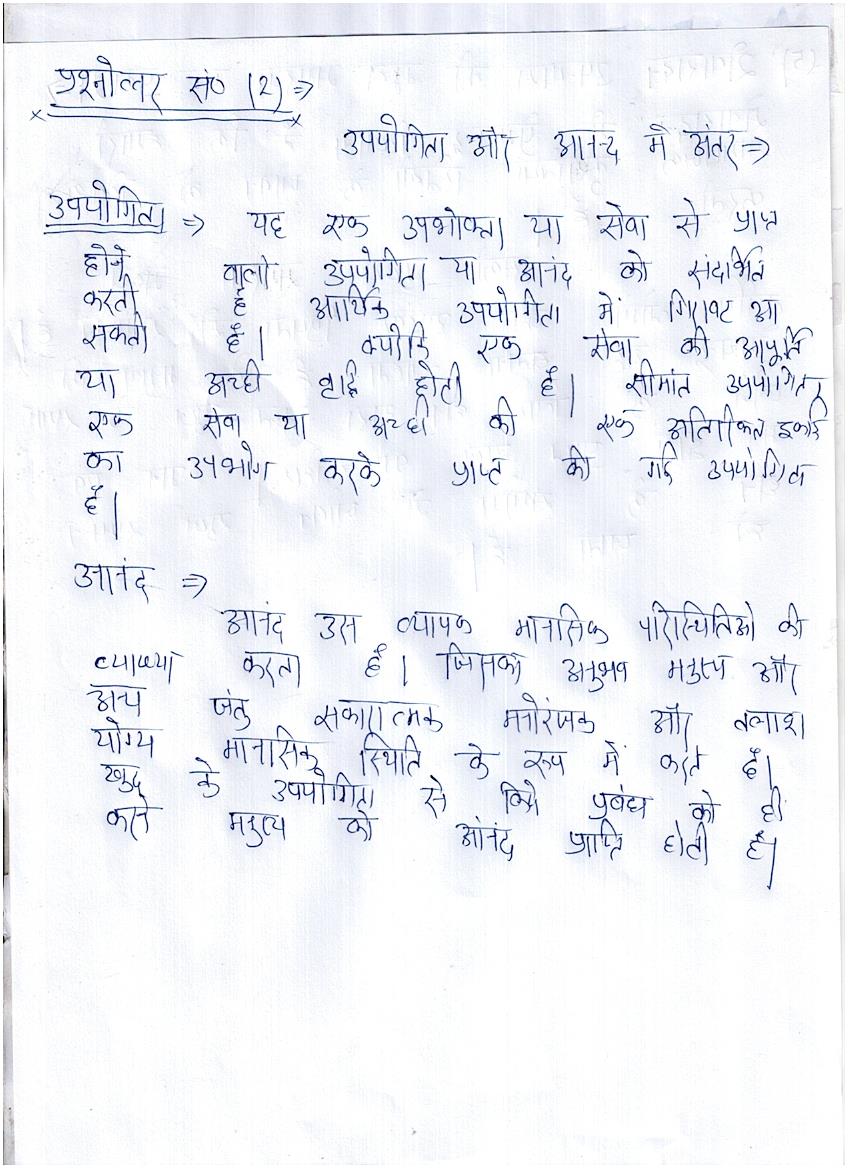 प्रश्नोत्तर सं० (2) ⇒
उपयोगिता और आनन्द में अंतर ⇒
उपयोगिता ⇒ यह एक उपभोक्ता या सेवा से प्राप्त
होने वालो उपयोगिता या आनंद को संदर्भित
करती हैं आर्थिक उपयोगिता में गिरावट आ
सकती हैं। क्योंकि एक सेवा की आपूर्ति
या अच्छी वृद्धि होती हैं। सीमांत उपयोगिता
एक सेवा या अच्छी की एक अतिरिक्त इकाई
का उपभोग करके प्राप्त की गई उपयोगिता
हैं।
आनंद ⇒
आनंद उस व्यापक मानसिक परिस्थितिओ की
व्याख्या करता हैं। जिसका अनुभव मनुष्य और
अन्य जंतु सकारात्मक मनोरंजक और तलाश
योग्य मानसिक स्थिति के रूप में करते हैं।
खुद के उपयोगिता से किये प्रबंध को ही
करने मनुष्य को आंनंद प्राप्ति होती हैं।